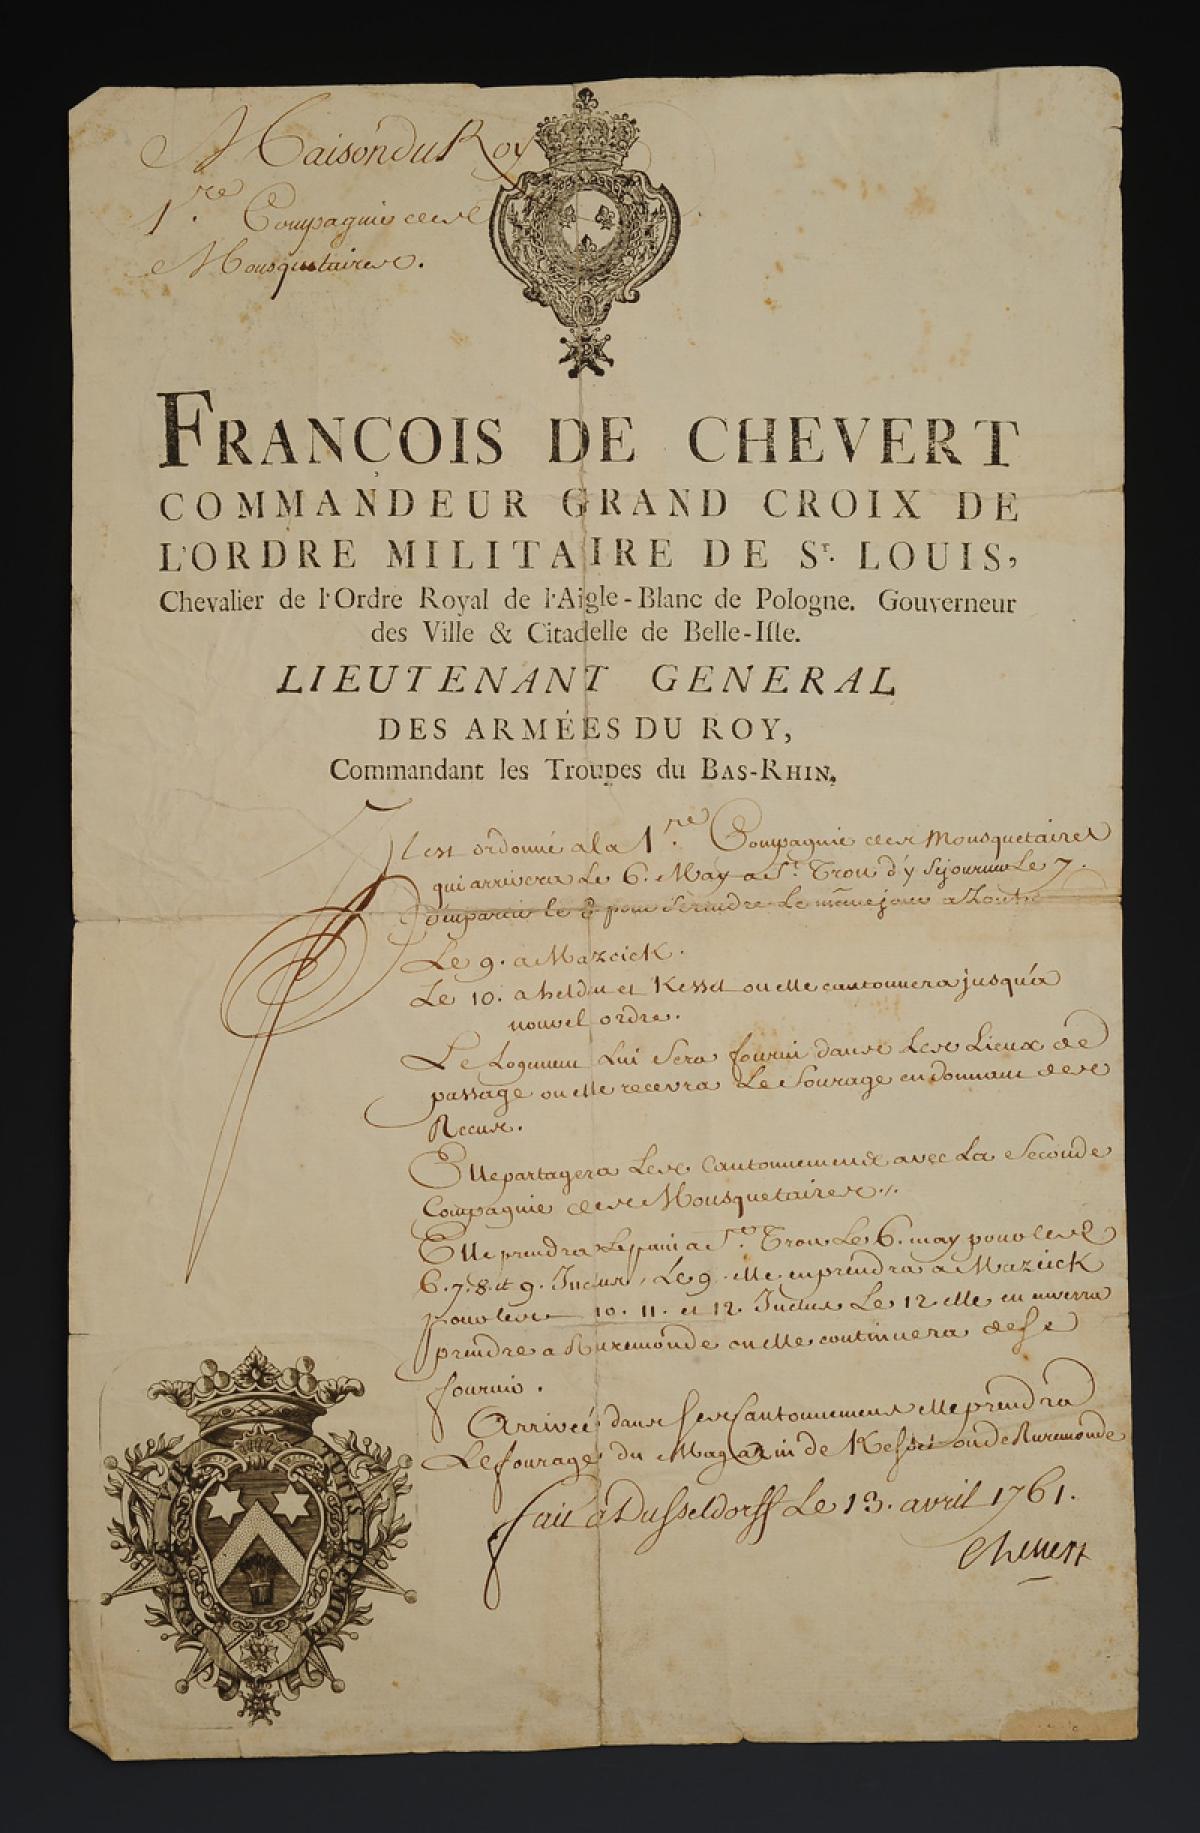 Maison du Roy
1.re Compagnie des
Mousquetaires.
FRANÇOIS DE CHEVERT
COMMANDEUR GRAND CROIX DE
L'ORDRE MILITAIRE DE St. LOUIS,
Chevalier de l'Ordre Royal de l'Aigle-Blanc de Pologne. Gouverneur
des Ville & Citadelle de Belle-Isle.
LIEUTENANT GENERAL
DES ARMÉES DU ROY,
Commandant les Troupes du BAS-RHIN,
Il est ordonné a la 1.re Compagnie des Mousquetaires
qui arrivera Le 6. May a St. Tron d'y Sejourner Le 7.
d'en partir le 8 pour se rendre Le même jour a
Le 9. a Mazeick.
Le 10. a helden et Kessel ou elle cantonnera jusqu'a
nouvel ordre.
Le Logement Lui Sera fourni dans Les Lieux de
passage ou elle recevra Le fourage en donnant des
Recus.
Elle partagera Les Cantonnements avec La Seconde
Compagnie des Mousquetaires ./.
Elle prendra Le pain a St. Tron Le 6. may pour les
6. 7. 8. et 9. Inclus, Le 9. elle en prendra a Mazeick
pour les 10. 11. et 12. Inclus Le 12 elle en enverra
prendre a Ruremonde ou elle continuera de s'e
fournir.
Arrivée dans ses Cantonnements elle prendra
Le fourage du Magazin de Kessel ou de Ruremonde
fait a Dusseldorff Le 13. avril 1761.
Chevert
VIRTUTIS PRÆMIUM